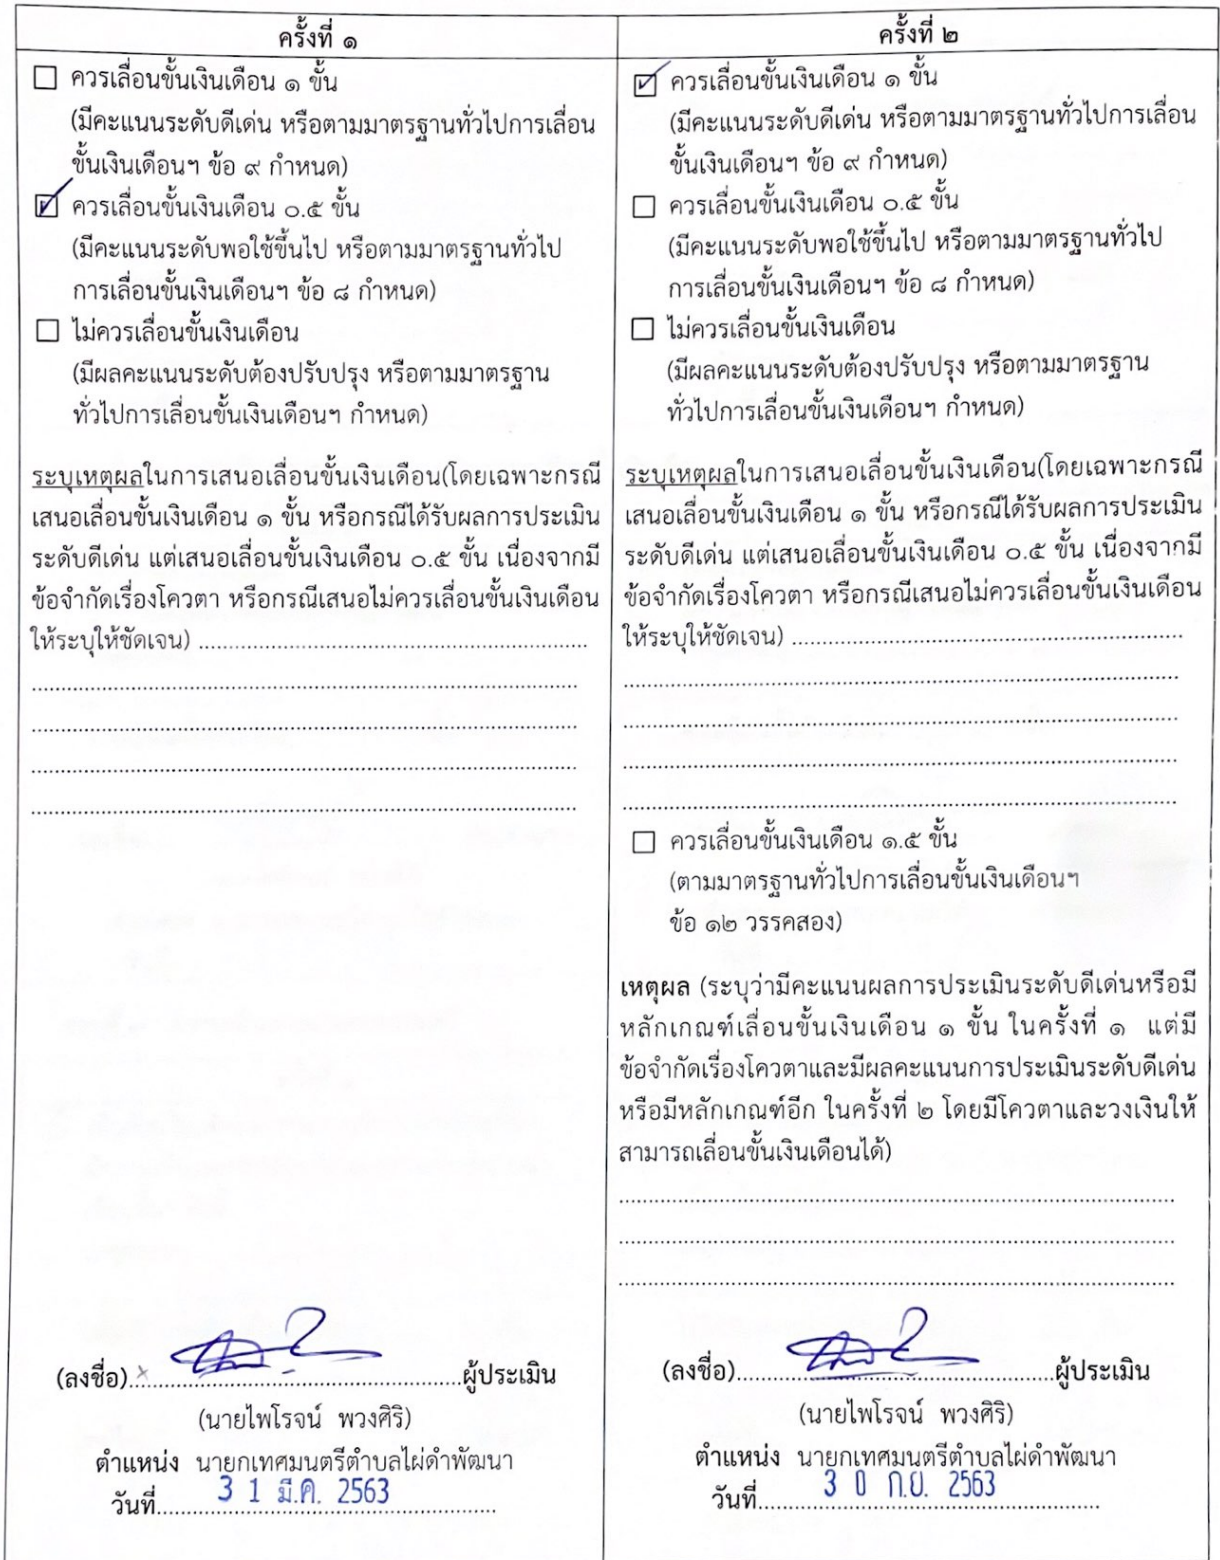 ครั้งที่ ๑
☐ ควรเลื่อนขั้นเงินเดือน ๑ ขั้น
(มีคะแนนระดับดีเด่น หรือตามมาตรฐานทั่วไปการเลื่อน
ขั้นเงินเดือนฯ ข้อ ๙ กำหนด)
☑ ควรเลื่อนขั้นเงินเดือน ๐.๕ ขั้น
(มีคะแนนระดับพอใช้ขึ้นไป หรือตามมาตรฐานทั่วไป
การเลื่อนขั้นเงินเดือนฯ ข้อ ๘ กำหนด)
☐ ไม่ควรเลื่อนขั้นเงินเดือน
(มีผลคะแนนระดับต้องปรับปรุง หรือตามมาตรฐาน
ทั่วไปการเลื่อนขั้นเงินเดือนฯ กำหนด)
ระบุเหตุผลในการเสนอเลื่อนขั้นเงินเดือน(โดยเฉพาะกรณี
เสนอเลื่อนขั้นเงินเดือน ๑ ขั้น หรือกรณีได้รับผลการประเมิน
ระดับดีเด่น แต่เสนอเลื่อนขั้นเงินเดือน ๐.๕ ขั้น เนื่องจากมี
ข้อจำกัดเรื่องโควตา หรือกรณีเสนอไม่ควรเลื่อนขั้นเงินเดือน
ให้ระบุให้ชัดเจน) ..........
(ลงชื่อ)..........ผู้ประเมิน
(นายไพโรจน์ พวงศิริ)
ตำแหน่ง นายกเทศมนตรีตำบลไผ่ดำพัฒนา
วันที่ 3 1 มี.ค. 2563
ครั้งที่ ๒
☑ ควรเลื่อนขั้นเงินเดือน ๑ ขั้น
(มีคะแนนระดับดีเด่น หรือตามมาตรฐานทั่วไปการเลื่อน
ขั้นเงินเดือนฯ ข้อ ๙ กำหนด)
☐ ควรเลื่อนขั้นเงินเดือน ๐.๕ ขั้น
(มีคะแนนระดับพอใช้ขึ้นไป หรือตามมาตรฐานทั่วไป
การเลื่อนขั้นเงินเดือนฯ ข้อ ๘ กำหนด)
☐ ไม่ควรเลื่อนขั้นเงินเดือน
(มีผลคะแนนระดับต้องปรับปรุง หรือตามมาตรฐาน
ทั่วไปการเลื่อนขั้นเงินเดือนฯ กำหนด)
ระบุเหตุผลในการเสนอเลื่อนขั้นเงินเดือน(โดยเฉพาะกรณี
เสนอเลื่อนขั้นเงินเดือน ๑ ขั้น หรือกรณีได้รับผลการประเมิน
ระดับดีเด่น แต่เสนอเลื่อนขั้นเงินเดือน ๐.๕ ขั้น เนื่องจากมี
ข้อจำกัดเรื่องโควตา หรือกรณีเสนอไม่ควรเลื่อนขั้นเงินเดือน
ให้ระบุให้ชัดเจน) ..........
☐ ควรเลื่อนขั้นเงินเดือน ๑.๕ ขั้น
(ตามมาตรฐานทั่วไปการเลื่อนขั้นเงินเดือนฯ
ข้อ ๑๒ วรรคสอง)
เหตุผล (ระบุว่ามีคะแนนผลการประเมินระดับดีเด่นหรือมี
หลักเกณฑ์เลื่อนขั้นเงินเดือน ๑ ขั้น ในครั้งที่ ๑ แต่มี
ข้อจำกัดเรื่องโควตาและมีผลคะแนนการประเมินระดับดีเด่น
หรือมีหลักเกณฑ์อีก ในครั้งที่ ๒ โดยมีโควตาและวงเงินให้
สามารถเลื่อนขั้นเงินเดือนได้)
(ลงชื่อ)..........ผู้ประเมิน
(นายไพโรจน์ พวงศิริ)
ตำแหน่ง นายกเทศมนตรีตำบลไผ่ดำพัฒนา
วันที่ 3 0 ก.ย. 2563